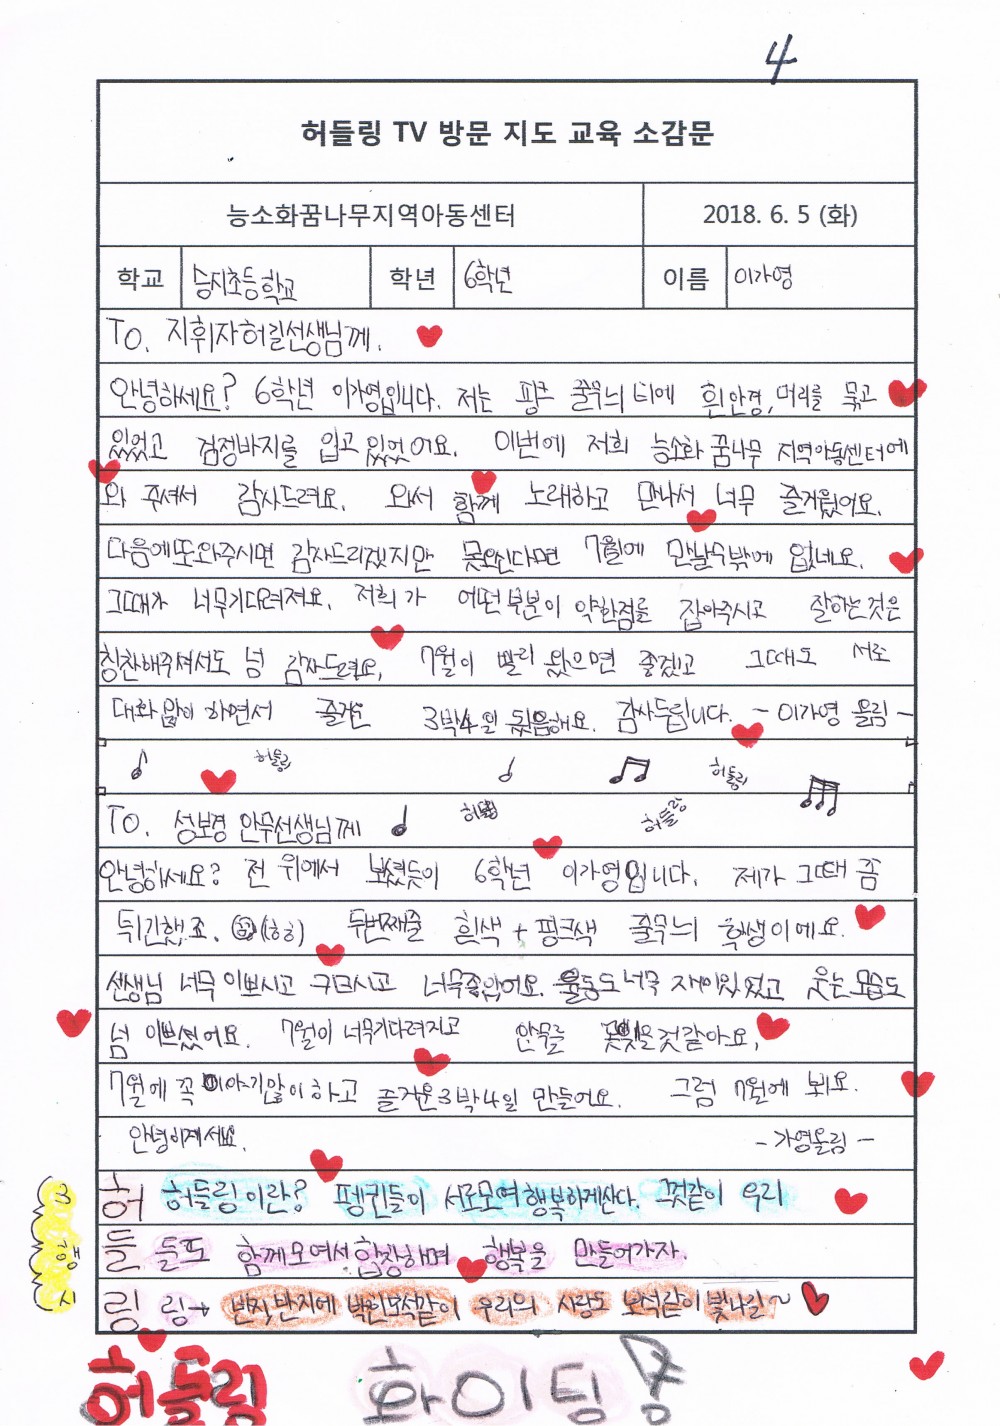 4
허들링 TV 방문 지도 교육 소감문
능소화꿈나무지역아동센터 2018. 6. 5 (화)
학교 승지초등학교 학년 6학년 이름 이가영
TO. 지휘자 허길선생님께.
안녕하세요? 6학년 이가영입니다. 저는 핑크 줄무늬 티에 흰안경, 머리를 묶고
있었고 검정바지를 입고 있었어요. 이번에 저희 능소화 꿈나무 지역아동센터에
와 주셔서 감사드려요. 와서 함께 노래하고 만나서 너무 즐거웠어요.
다음에또와주시면 감사드리겠지만 못오신다면 7월에 만날수밖에 없네요.
그때가 너무기다려져요. 저희가 어떤부분이 약한점을 잡아주시고 잘하는것은
칭찬해주셔서도 넘 감사드려요, 7월이 빨리 왔으면 좋겠고 그때도 서로
대화많이 하면서 즐거운 3박4일 감사드립니다. - 이가영 올림 -
허들링 허들링
TO. 성보경 안무선생님께 허들링
안녕하세요? 전 위에서 보셨듯이 6학년 이가영입니다. 제가 그때 좀
튀긴했죠. (ㅎㅎ) 두번째줄 흰색 + 핑크색 줄무늬 학생이에요.
선생님 너무 이쁘시고 너무좋았어요. 율동도 너무 재미있었고 웃는모습도
넘 이쁘셨어요. 7월이 너무기다려지고 안무를 것같아요,
7월에 꼭 이야기많이 하고 즐거운 3박4일 만들어요. 그럼 7월에 봬요.
안녕히계세요. - 가영올림 -
3행시
허 허들링이란? 펭귄들이 서로모여 행복하게산다. 그것같이 우리
들 들도 함께모여서 합창하며 행복을 만들어가자.
링 링→ 반지, 반지에 박힌보석같이 우리의 사랑도 보석같이 빛나길~
허들링 화이팅